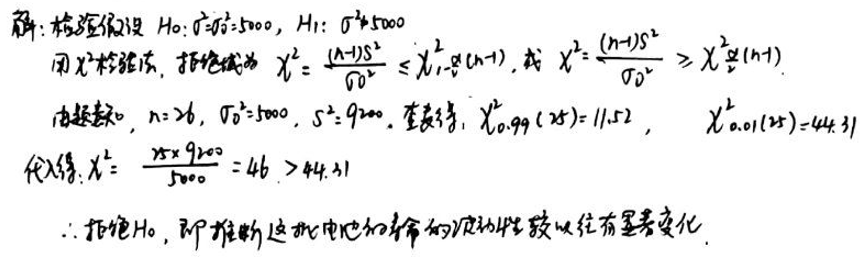 解:检验假设 H₀:σ²=σ₀²=5000, H₁: σ²≠5000
用χ²检验法, 拒绝域为 χ²= (n-1)S²/σ₀² ≤ χ²_{1-α/2}(n-1), 或 χ²= (n-1)S²/σ₀² ≥ χ²_{α/2}(n-1).
由题意知, n=26, σ₀²=5000, S²=9200. 查表得, χ²_{0.99}(25)=11.52, χ²_{0.01}(25)=44.31
代入得: χ²= 25×9200/5000 =46 >44.31
∴拒绝H₀, 即推断这批电池的寿命的波动性较以往有显著变化.